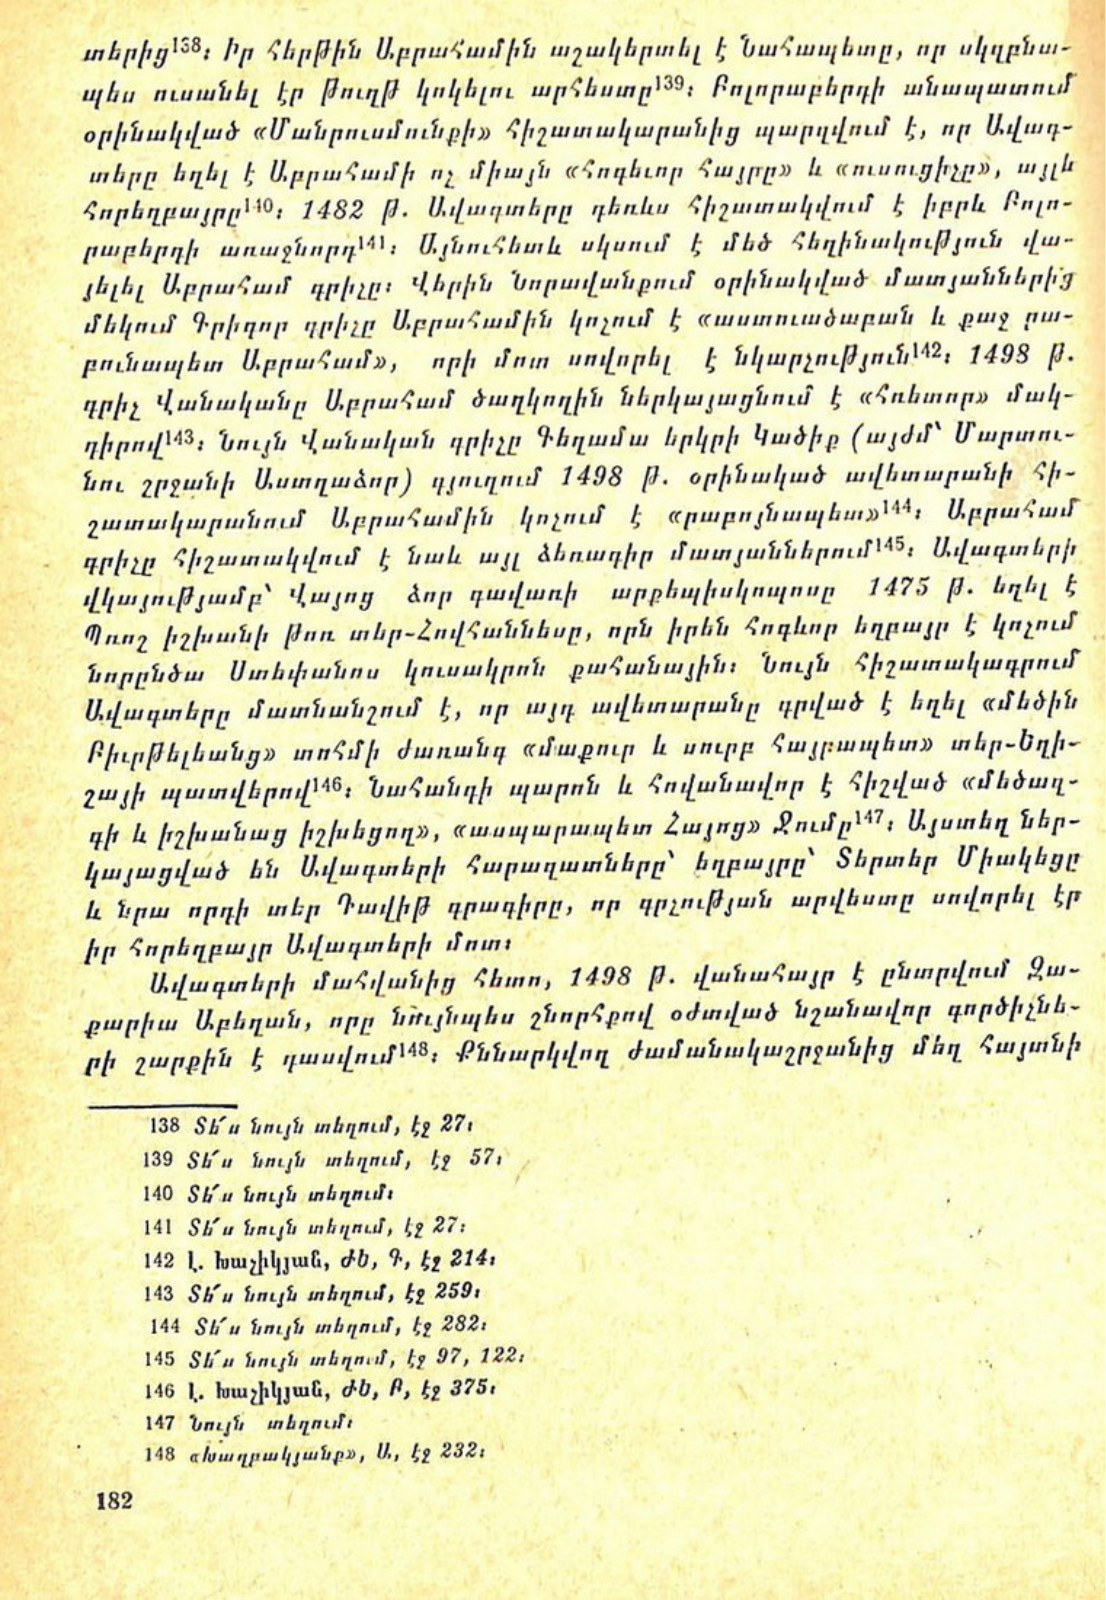 տերից138։ Իր հերթին Աբրահամին աշակերտել է Նահապետը, որ սկզբնա-
պես ուսանել էր թուղթ կոկելու արհեստը139։ Բոլորաբերդի անապատում
օրինակված «Մանրուսմունքի» հիշատակարանից պարզվում է, որ Ավագ-
տերը եղել է Աբրահամի ոչ միայն «հոգեւոր հայրը» և «ուսուցիչը», այլև
հորեղբայրը140։ 1482 թ. Ավագտերը դեռևս հիշատակվում է իբրև Բոլո-
րաբերդի առաջնորդ141։ Այնուհետև սկսում է մեծ հեղինակություն վա-
յելել Աբրահամ գրիչը։ Վերին Նորավանքում օրինակված մատյաններից
մեկում Գրիգոր գրիչը Աբրահամին կոչում է «աստուածաբան և քաջ րա-
բունապետ Աբրահամ», որի մոտ սովորել է նկարչություն142։ 1498 թ.
գրիչ Վանականը Աբրահամ ծաղկողին ներկայացնում է «հռետոր» մակ-
դիրով143։ Նույն Վանական գրիչը Գեղամա երկրի Կածիք (այժմ՝ Մարտու-
նու շրջանի Աստղաձոր) գյուղում 1498 թ. օրինակած ավետարանի հի-
շատակարանում Աբրահամին կոչում է «րաբոյնապետ»144։ Աբրահամ
գրիչը հիշատակվում է նաև այլ ձեռագիր մատյաններում145։ Ավագտերի
վկայությամբ՝ Վայոց ձոր գավառի արքեպիսկոպոսը 1475 թ. եղել է
Պռոշ իշխանի թոռ տեր-Հովհաննեսը, որն իրեն հոգևոր եղբայր է կոչում
նորընծա Ստեփանոս կուսակրոն քահանային։ Նույն հիշատակագրում
Ավագտերը մատնանշում է, որ այդ ավետարանը գրված է եղել «մեծին
Բիւրթելեանց» տոհմի ժառանգ «մաքուր և սուրբ հայրապետ» տեր-Եղի-
շայի պատվերով146։ Նահանգի պարոն և հովանավոր է հիշված «մեծազ-
գի և իշխանաց իշխեցող», «ասպարապետ Հայոց» Ջումը147։ Այստեղ ներ-
կայացված են Ավագտերի հարազատները՝ եղբայրը՝ Տերտեր Միակեցը
և նրա որդի տեր Դավիթ գրագիրը, որ գրչության արվեստը սովորել էր
իր հորեղբայր Ավագտերի մոտ։
Ավագտերի մահվանից հետո, 1498 թ. վանահայր է ընտրվում Զա-
քարիա Աբեղան, որը նույնպես շնորհքով օժտված նշանավոր գործիչնե-
րի շարքին է դասվում148։ Քննարկվող ժամանակաշրջանից մեղ հայտնի
138 Տե՛ս նույն տեղում, էջ 27։
139 Տե՛ս նույն տեղում, էջ 57։
140 Տե՛ս նույն տեղում։
141 Տե՛ս նույն տեղում, էջ 27։
142 Լ. Խաչիկյան, ԺԵ, Գ, էջ 214։
143 Տե՛ս նույն տեղում, էջ 259։
144 Տե՛ս նույն տեղում, էջ 282։
145 Տե՛ս նույն տեղում, էջ 97, 122։
146 Լ. Խաչիկյան, ԺԵ, Բ, էջ 375։
147 Նույն տեղում։
148 «Խաղբակյանք», Ա, էջ 232։
182